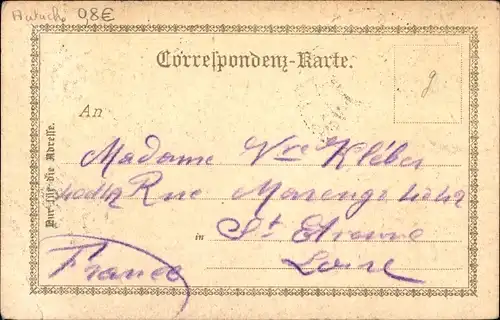 0,8€
Correspondenz-Karte.
g
An
Nur für die Adresse.
Madame Vve Kléber
Rue Marengo
in St Etienne
Loire
France